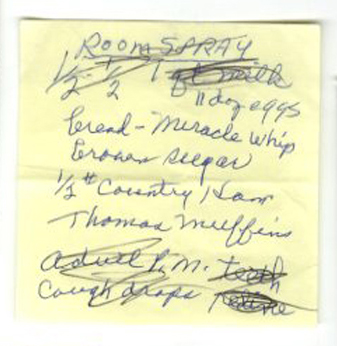 ROOM SPRAY
1/2 + 1/2 1 gl milk
11 doz eggs
bread - Miracle Whip
brown sugar
1/2 # Country Ham
Thomas Muffins
advil P.M. teeth
cough drops